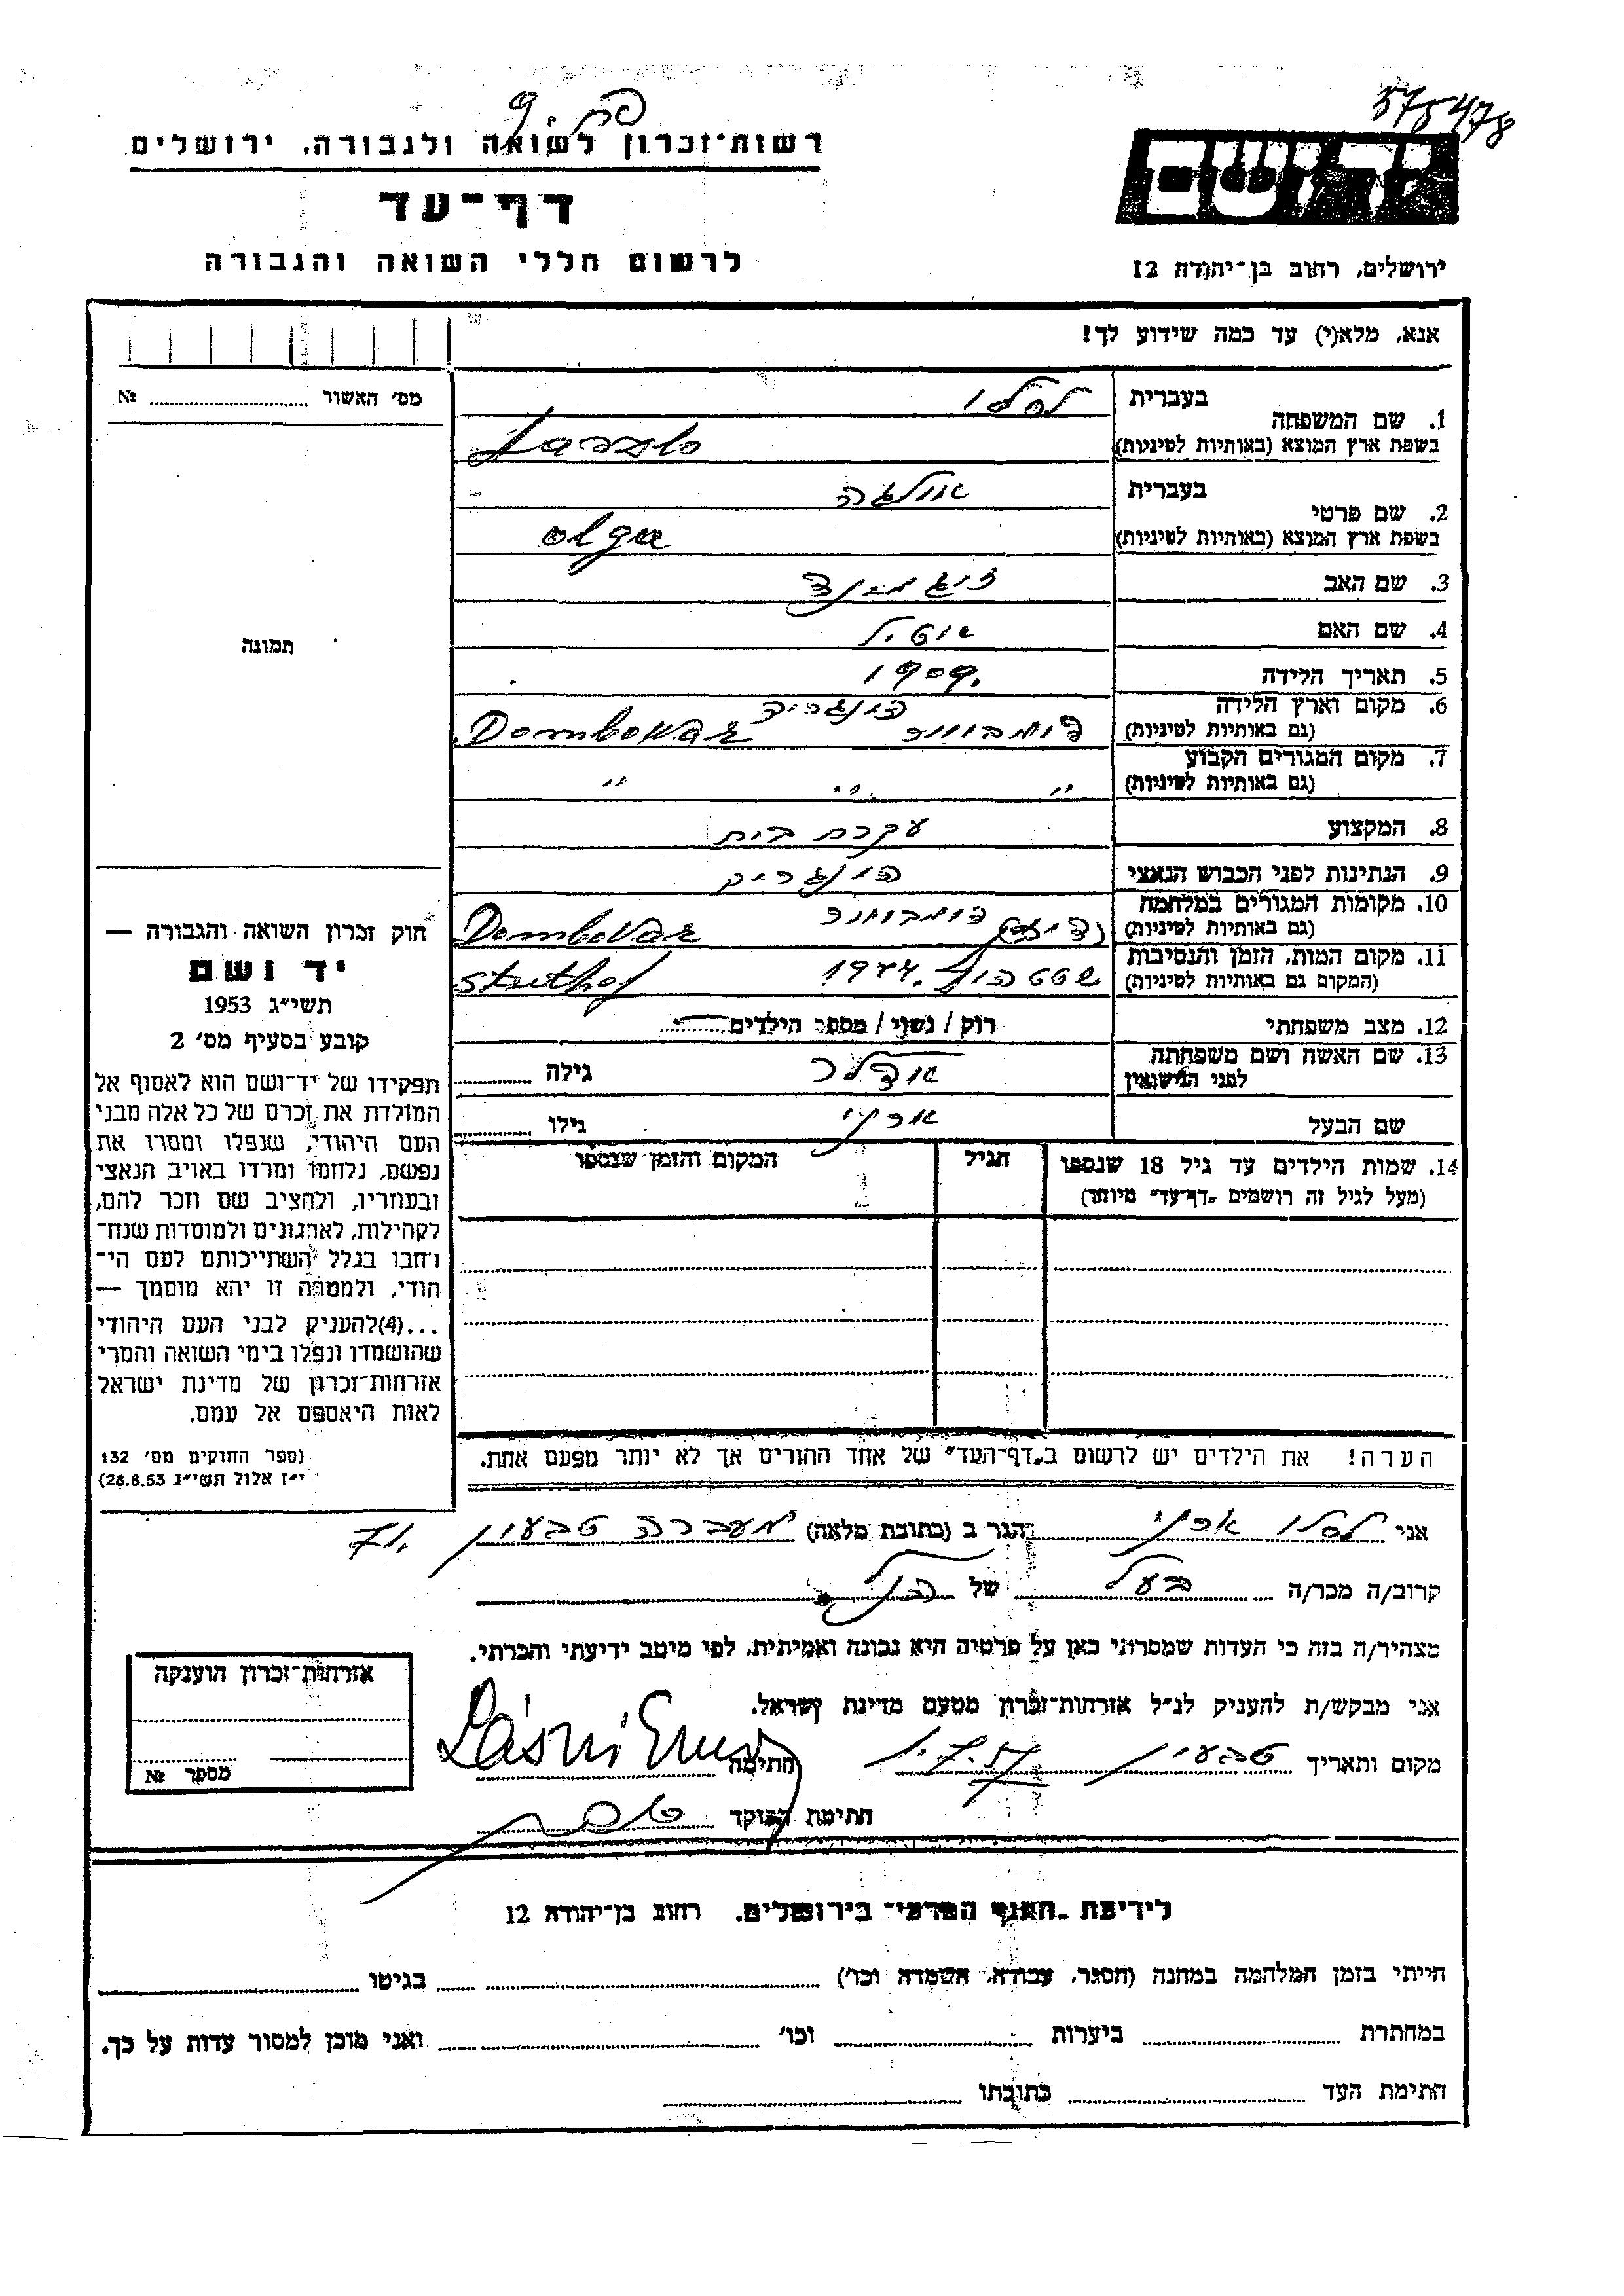 575478
רשות־זכרון לשואה ולגבורה, ירושלים
יד ושם
דף־עד
לרשום חללי השואה והגבורה
ירושלים, רחוב בן־יהודה 12
אנא, מלא(י) עד כמה שידוע לך!
מס׳ האשור ........ №
בעברית לסלו
1. שם המשפחה
בשפת ארץ המוצא (באותיות לטיניות) Laszlo
בעברית אולגה
2. שם פרטי
בשפת ארץ המוצא (באותיות לטיניות) olga
3. שם האב זיגמונד
4. שם האם
5. תאריך הלידה 1909.
6. מקום וארץ הלידה הונגריה
(גם באותיות לטיניות) דומבוואר Dombovar
7. מקום המגורים הקבוע
(גם באותיות לטיניות) " " "
8. המקצוע עקרת בית
9. הנתינות לפני הכבוש הנאצי הונגרית
10. מקומות המגורים במלחמה דומבוואר
(גם באותיות לטיניות) Dombovar
11. מקום המות, הזמן והנסיבות
(המקום גם באותיות לטיניות) שטטהוף 1944. Stutthof
12. מצב משפחתי רווק / נשוי / מספר הילדים
13. שם האשה ושם משפחתה
לפני הנישואין אדלר גילה
שם הבעל ארני גילו
14. שמות הילדים עד גיל 18 שנספו הגיל המקום והזמן שנספו
(מעל לגיל זה רושמים "דף־עד" מיוחד)
תמונה
חוק זכרון השואה והגבורה —
יד ושם
תשי״ג 1953
קובע בסעיף מס׳ 2
תפקידו של יד־ושם הוא לאסוף אל
המולדת את זכרם של כל אלה מבני
העם היהודי, שנפלו ומסרו את
נפשם, נלחמו ומרדו באויב הנאצי
ובעוזריו, ולהציב שם וזכר להם,
לקהילות, לארגונים ולמוסדות שנח־
רחבו בגלל השתייכותם לעם הי־
הודי, ולמטרה זו יהא מוסמך —
...(4)להעניק לבני העם היהודי
שהושמדו ונפלו בימי השואה והמרי
אזרחות־זכרון של מדינת ישראל
לאות היאספם אל עמם.
(ספר החוקים מס׳ 132
י״ז אלול תשי״ג 28.8.53)
הערה! את הילדים יש לרשום ב"דף־העד" של אחד ההורים אך לא יותר מפעם אחת.
אני לסלו ארני הגר ב (כתובת מלאה) מעברה טבעון 71.
קרוב/ה מכר/ה בעל של הנ"ל
מצהיר/ה בזה כי העדות שמסרתי כאן על פרטיה היא נכונה ואמיתית, לפי מיטב ידיעתי והכרתי.
אני מבקש/ת להעניק לנ״ל אזרחות־זכרון מטעם מדינת ישראל.
מקום ותאריך טבעון 1.7.57 חתימה
חתימת הפוקד
אזרחות־זכרון הוענקה
מספר №
לידיעת "הענף המדעי" בירושלים, רחוב בן־יהודה 12
הייתי בזמן המלחמה במחנה (הסגר, עבודה, השמדה וכו׳) בגיטו
במחתרת ביערות וכו׳ ואני מוכן למסור עדות על כך.
חתימת העד כתובתו